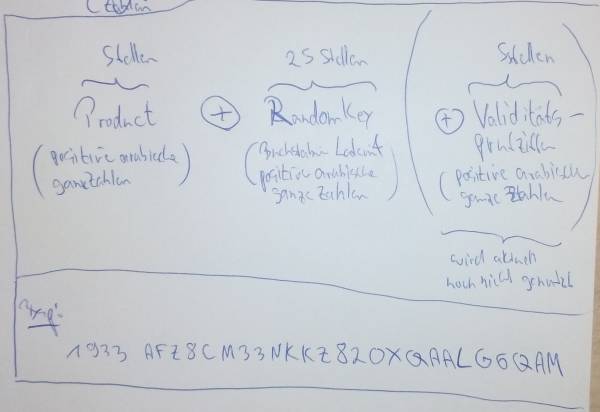 Stellen 25 Stellen Stellen
Product + RandomKey + Validitäts-
prüfziffern
(positive arabische
ganze Zahlen)
(Buchstaben Latein +
positive arabische
ganze Zahlen)
(positive arabische
ganze Zahlen)
wird aktuell
noch nicht genutzt
1933 AFZ8CM33NKKZ82OXQAALG6QAM